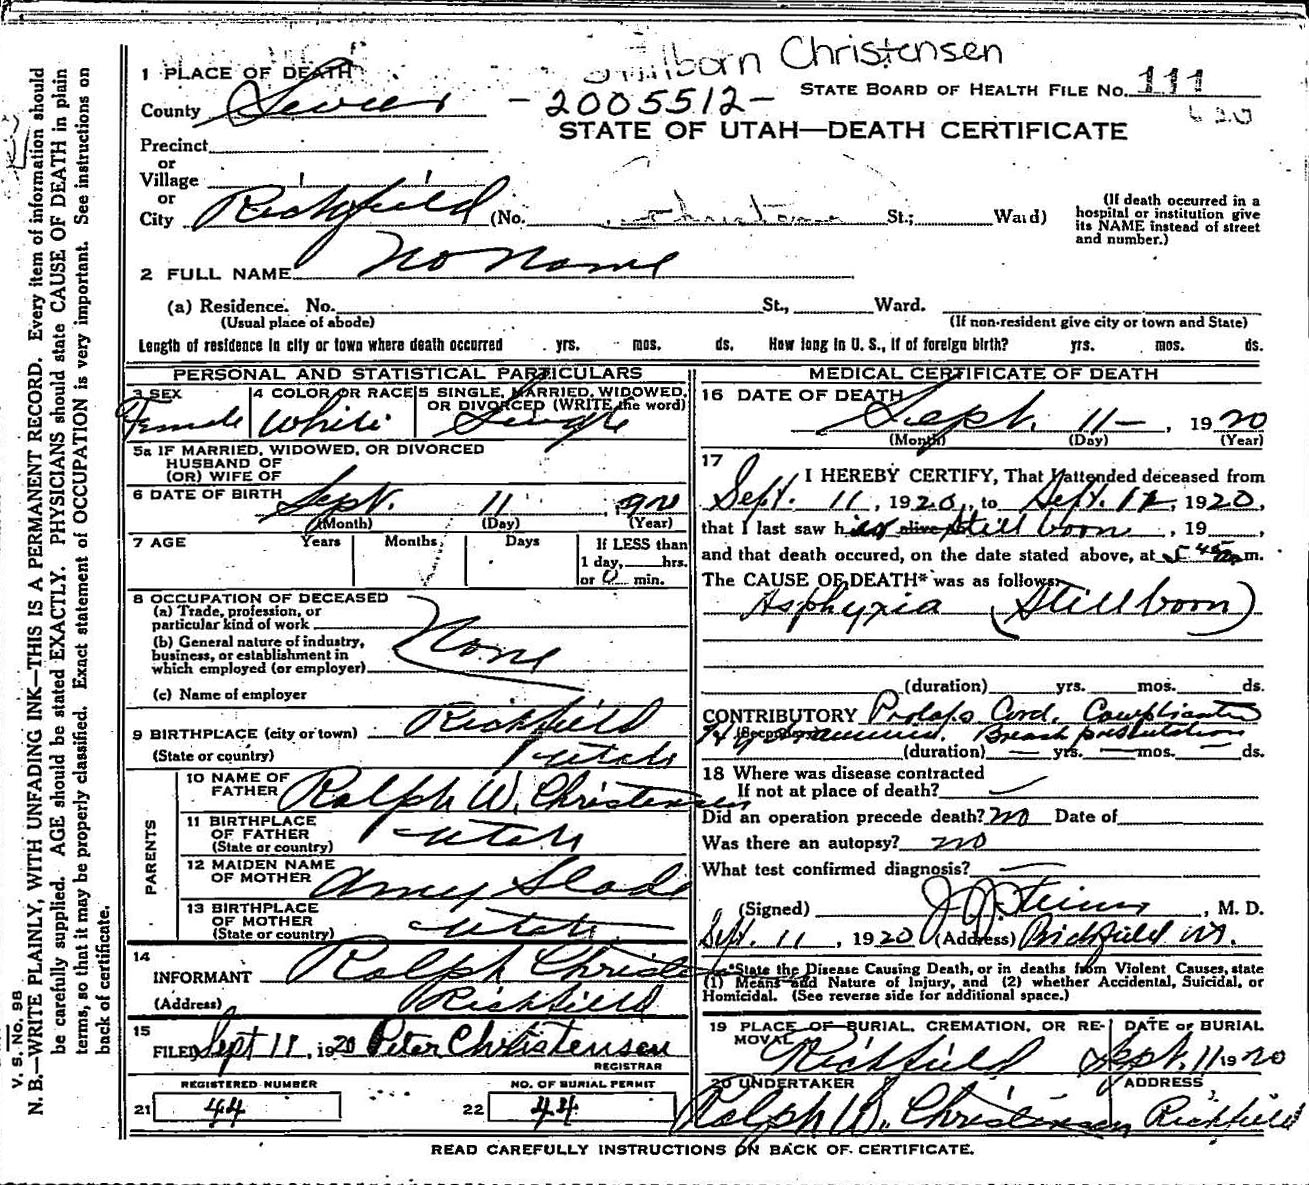 Stillborn Christensen
1 PLACE OF DEATH
STATE BOARD OF HEALTH FILE No. 111
County Sevier
-2005512-
620
STATE OF UTAH—DEATH CERTIFICATE
Precinct
or
Village
or
City Richfield (No. Christensen St.; Ward)
(If death occurred in a
hospital or institution give
its NAME instead of street
and number.)
2 FULL NAME No Name
(a) Residence. No. St., Ward.
(Usual place of abode) (If non-resident give city or town and State)
Length of residence in city or town where death occurred yrs. mos. ds. How long in U. S., if of foreign birth? yrs. mos. ds.
PERSONAL AND STATISTICAL PARTICULARS
3 SEX
Female
4 COLOR OR RACE
White
5 SINGLE, MARRIED, WIDOWED,
OR DIVORCED (WRITE the word)
Single
5a IF MARRIED, WIDOWED, OR DIVORCED
HUSBAND OF
(OR) WIFE OF
6 DATE OF BIRTH Sept. 11, 920
(Month) (Day) (Year)
7 AGE Years Months Days If LESS than
1 day, hrs.
or 0 min.
8 OCCUPATION OF DECEASED
(a) Trade, profession, or
particular kind of work
(b) General nature of industry,
business, or establishment in
which employed (or employer)
None
(c) Name of employer
9 BIRTHPLACE (city or town) Richfield
(State or country) Utah
PARENTS
10 NAME OF
FATHER Ralph W. Christensen
11 BIRTHPLACE
OF FATHER
(State or country) Utah
12 MAIDEN NAME
OF MOTHER Amy Slade
13 BIRTHPLACE
OF MOTHER
(State or country) Utah
14
INFORMANT Ralph Christensen
(Address) Richfield
15
FILED Sept 11, 1920 Peter Christensen
REGISTRAR
REGISTERED NUMBER
21 44
NO. OF BURIAL PERMIT
22 44
MEDICAL CERTIFICATE OF DEATH
16 DATE OF DEATH
Sept. 11—, 1920
(Month) (Day) (Year)
17
I HEREBY CERTIFY, That I attended deceased from
Sept. 11, 1920, to Sept. 11, 1920,
that I last saw her alive Still born, 19 ,
and that death occured, on the date stated above, at 5 45 m.
The CAUSE OF DEATH* was as follows:
Asphyxia (Stillborn)
(duration) yrs. mos. ds.
CONTRIBUTORY Prolaps Cord. Complicated
(Secondary) Breach presentation
(duration) — yrs. — mos. — ds.
18 Where was disease contracted
If not at place of death?
Did an operation precede death? no Date of
Was there an autopsy? no
What test confirmed diagnosis? —
(Signed) J.J. Steiner, M. D.
Sept. 11, 1920 (Address) Richfield Ut.
*State the Disease Causing Death, or in deaths from Violent Causes, state
(1) Means and Nature of Injury, and (2) whether Accidental, Suicidal, or
Homicidal. (See reverse side for additional space.)
19 PLACE OF BURIAL, CREMATION, OR RE-
MOVAL Richfield
DATE of BURIAL
Sept. 11 1920
20 UNDERTAKER
Ralph W. Christensen
ADDRESS
Richfield
READ CAREFULLY INSTRUCTIONS ON BACK OF CERTIFICATE.
V. S. No. 98
N. B.—WRITE PLAINLY, WITH UNFADING INK—THIS IS A PERMANENT RECORD. Every item of information should
be carefully supplied. AGE should be stated EXACTLY. PHYSICIANS should state CAUSE OF DEATH in plain
terms, so that it may be properly classified. Exact statement of OCCUPATION is very important. See instructions on
back of certificate.